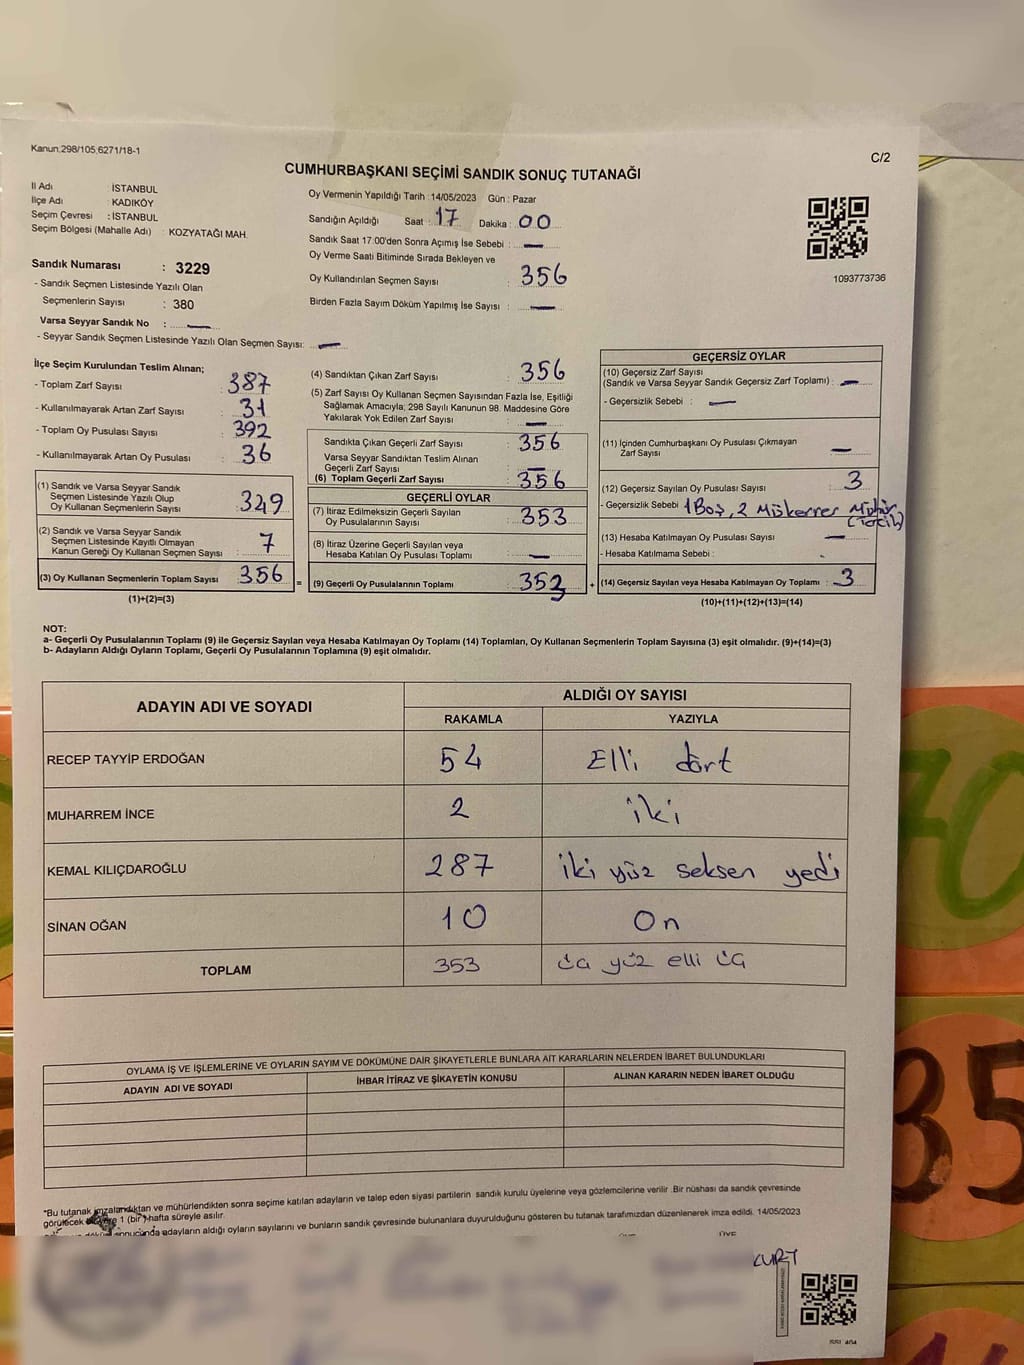 Kanun.298/105,6271/18-1
C/2
CUMHURBAŞKANI SEÇİMİ SANDIK SONUÇ TUTANAĞI
İl Adı : İSTANBUL
İlçe Adı : KADIKÖY
Seçim Çevresi : İSTANBUL
Seçim Bölgesi (Mahalle Adı) : KOZYATAĞI MAH.
Sandık Numarası : 3229
- Sandık Seçmen Listesinde Yazılı Olan
Seçmenlerin Sayısı : 380
Varsa Seyyar Sandık No : —
- Seyyar Sandık Seçmen Listesinde Yazılı Olan Seçmen Sayısı: —
Oy Vermenin Yapıldığı Tarih : 14/05/2023 Gün : Pazar
Sandığın Açıldığı Saat : 17 Dakika : 00
Sandık Saat 17:00'den Sonra Açımış İse Sebebi : —
Oy Verme Saati Bitiminde Sırada Bekleyen ve
Oy Kullandırılan Seçmen Sayısı : 356
Birden Fazla Sayım Döküm Yapılmış İse Sayısı : —
1093773736
İlçe Seçim Kurulundan Teslim Alınan;
- Toplam Zarf Sayısı : 387
- Kullanılmayarak Artan Zarf Sayısı : 31
- Toplam Oy Pusulası Sayısı : 392
- Kullanılmayarak Artan Oy Pusulası : 36
(1) Sandık ve Varsa Seyyar Sandık
Seçmen Listesinde Yazılı Olup
Oy Kullanan Seçmenlerin Sayısı : 349
(2) Sandık ve Varsa Seyyar Sandık
Seçmen Listesinde Kayıtlı Olmayan
Kanun Gereği Oy Kullanan Seçmen Sayısı : 7
(3) Oy Kullanan Seçmenlerin Toplam Sayısı : 356
(1)+(2)=(3)
(4) Sandıktan Çıkan Zarf Sayısı : 356
(5) Zarf Sayısı Oy Kullanan Seçmen Sayısından Fazla İse, Eşitliği
Sağlamak Amacıyla; 298 Sayılı Kanunun 98. Maddesine Göre
Yakılarak Yok Edilen Zarf Sayısı : —
Sandıkta Çıkan Geçerli Zarf Sayısı : 356
Varsa Seyyar Sandıktan Teslim Alınan
Geçerli Zarf Sayısı : —
(6) Toplam Geçerli Zarf Sayısı : 356
GEÇERLİ OYLAR
(7) İtiraz Edilmeksizin Geçerli Sayılan
Oy Pusulalarının Sayısı : 353
(8) İtiraz Üzerine Geçerli Sayılan veya
Hesaba Katılan Oy Pusulası Toplamı : —
= (9) Geçerli Oy Pusulalarının Toplamı : 353 +
GEÇERSİZ OYLAR
(10) Geçersiz Zarf Sayısı
(Sandık ve Varsa Seyyar Sandık Geçersiz Zarf Toplamı) : —
- Geçersizlik Sebebi : —
(11) İçinden Cumhurbaşkanı Oy Pusulası Çıkmayan
Zarf Sayısı : —
(12) Geçersiz Sayılan Oy Pusulası Sayısı : 3
- Geçersizlik Sebebi 1 Boş, 2 Mükerrer Mühür
(Tercih)
(13) Hesaba Katılmayan Oy Pusulası Sayısı : —
- Hesaba Katılmama Sebebi :
(14) Geçersiz Sayılan veya Hesaba Katılmayan Oy Toplamı : 3
(10)+(11)+(12)+(13)=(14)
NOT:
a- Geçerli Oy Pusulalarının Toplamı (9) ile Geçersiz Sayılan veya Hesaba Katılmayan Oy Toplamı (14) Toplamları, Oy Kullanan Seçmenlerin Toplam Sayısına (3) eşit olmalıdır. (9)+(14)=(3)
b- Adayların Aldığı Oyların Toplamı, Geçerli Oy Pusulalarının Toplamına (9) eşit olmalıdır.
ADAYIN ADI VE SOYADI
ALDIĞI OY SAYISI
RAKAMLA YAZIYLA
RECEP TAYYİP ERDOĞAN 54 Elli dört
MUHARREM İNCE 2 iki
KEMAL KILIÇDAROĞLU 287 iki yüz seksen yedi
SİNAN OĞAN 10 On
TOPLAM 353 üç yüz elli üç
OYLAMA İŞ VE İŞLEMLERİNE VE OYLARIN SAYIM VE DÖKÜMÜNE DAİR ŞİKAYETLERLE BUNLARA AİT KARARLARIN NELERDEN İBARET BULUNDUKLARI
ADAYIN ADI VE SOYADI İHBAR İTİRAZ VE ŞİKAYETİN KONUSU ALINAN KARARIN NEDEN İBARET OLDUĞU
*Bu tutanak imzalandıktan ve mühürlendikten sonra seçime katılan adayların ve talep eden siyasi partilerin sandık kurulu üyelerine veya gözlemcilerine verilir. Bir nüshası da sandık çevresinde
görülecek bir yere 1 (bir) hafta süreyle asılır.
sonucunda adayların aldığı oyların sayılarını ve bunların sandık çevresinde bulunanlara duyurulduğunu gösteren bu tutanak tarafımızdan düzenlenerek imza edildi. 14/05/2023
ÜYE ÜYE
KURT
70
35